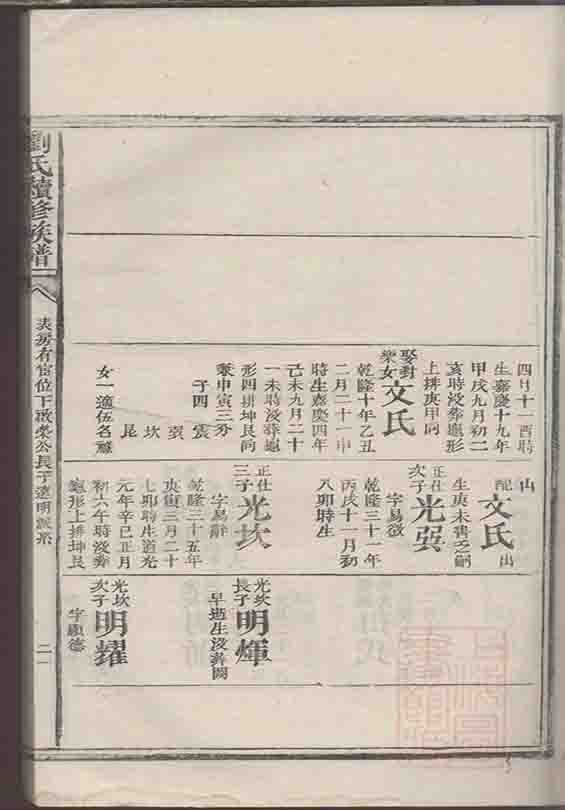 劉氏續修族譜
表房有官位下啟榮公長子達明派系
二一
四日十一酉時
生嘉慶十九年
甲戌九月初二
亥時沒葬龜形
上排庚甲向
娶對
樂女
文氏
乾隆十年乙丑
二月二十一申
時生嘉慶四年
己未九月二十
一未時沒葬龜
形四排坤艮向
兼申寅三分
子四
震
巽
坎
昆
女一適伍名
配
文氏
出
生庚未書
正仕
次子
光巽
字易徵
乾隆三十一年
丙戌十一月初
八卯時生
正仕
三子
光坎
字易辭
乾隆三十五年
庚寅三月二十
七卯時生道光
元年辛巳正月
初六午時沒葬
龜形上排坤艮
光坎
長子
明煇
早逝生沒葬闕
光坎
次子
明耀
字顯德